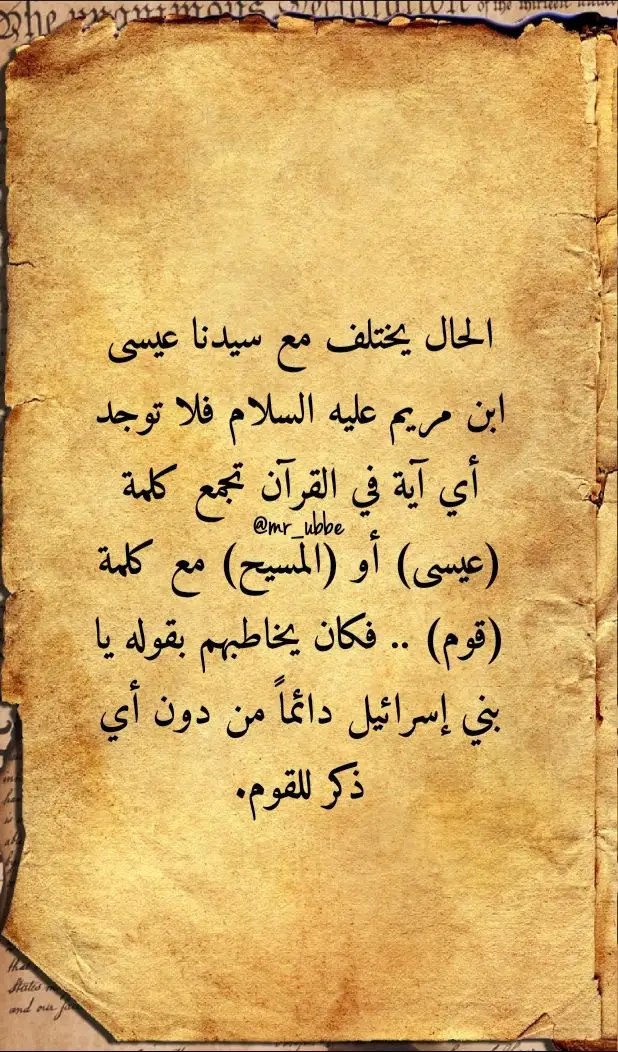 The unanimous Declaration of the thirteen united
الحال يختلف مع سيدنا عيسى
ابن مريم عليه السلام فلا توجد
أي آية في القرآن تجمع كلمة
@mr_ubbe
(عيسى) أو (المسيح) مع كلمة
(قوم) .. فكان يخاطبهم بقوله يا
بني إسرائيل دائماً من دون أي
ذكر للقوم.
States
and our